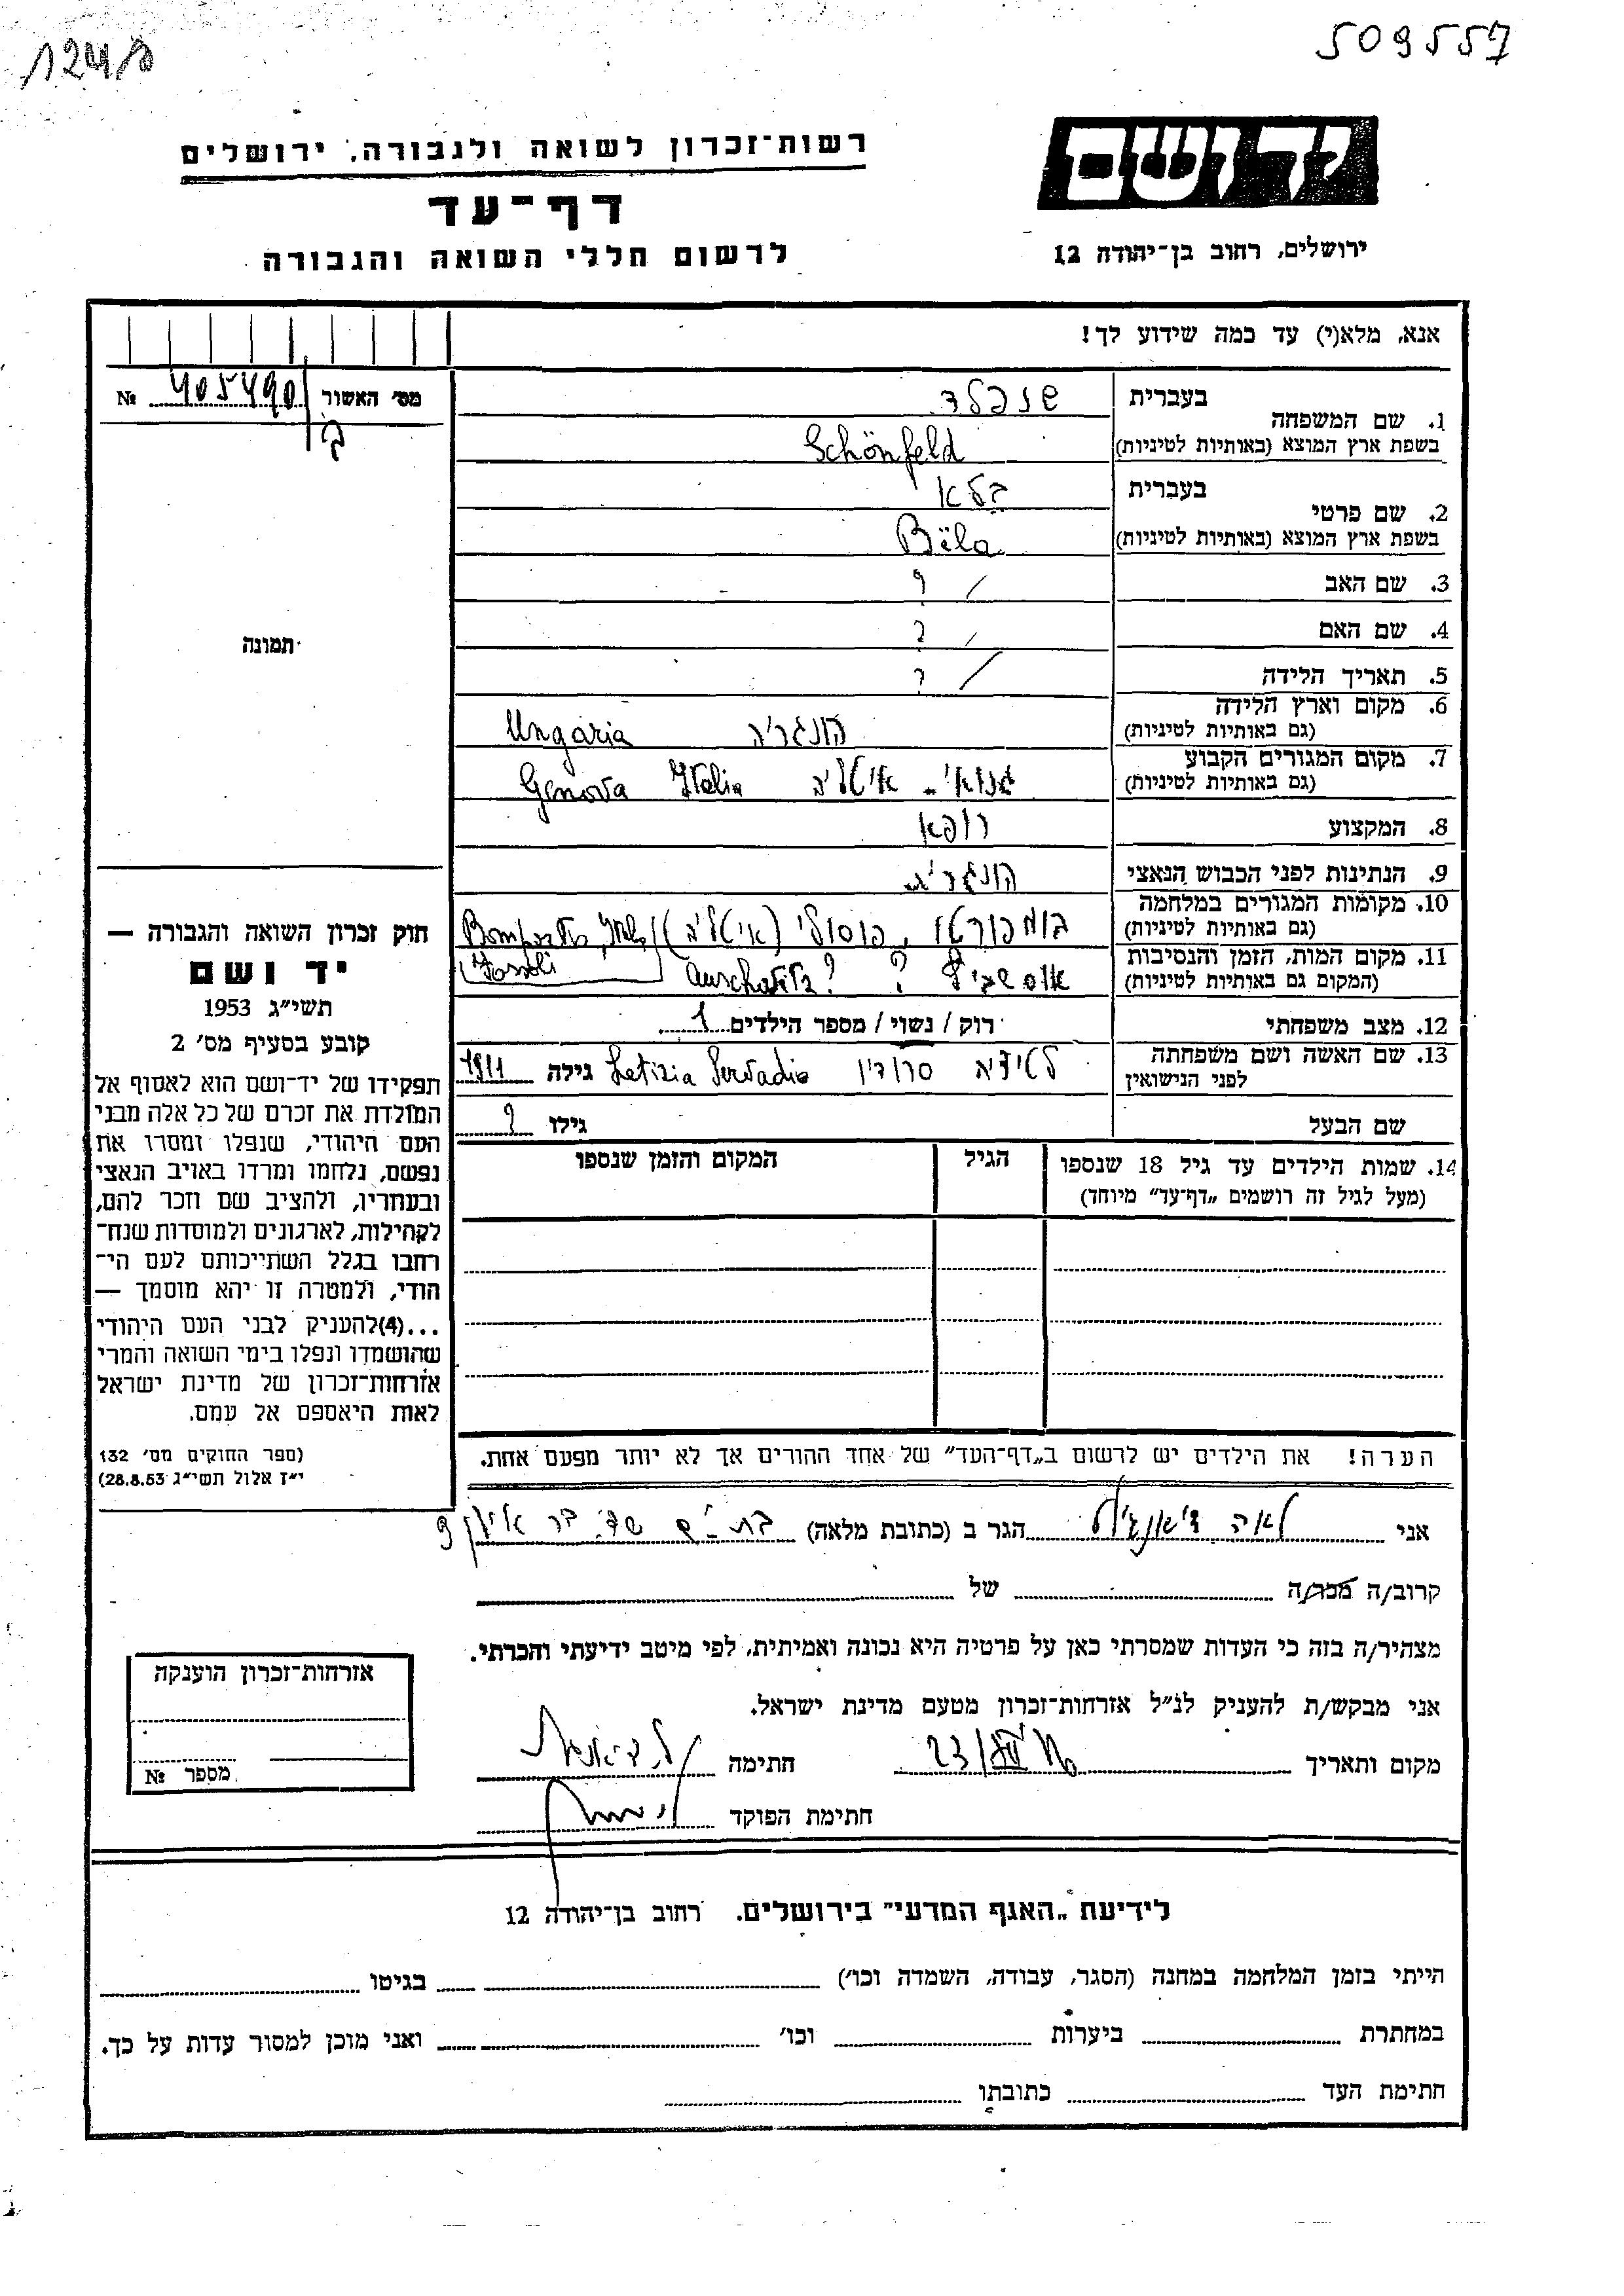 509557
יד ושם
רשות־זכרון לשואה ולגבורה, ירושלים
דף־עד
לרשום חללי השואה והגבורה
ירושלים, רחוב בן־יהודה 12
אנא, מלא(י) עד כמה שידוע לך!
מס׳ האשור № 405490
תמונה
1. שם המשפחה
בעברית שנפלד
בשפת ארץ המוצא (באותיות לטיניות) Schönfeld
2. שם פרטי
בעברית בלא
בשפת ארץ המוצא (באותיות לטיניות) Bëla
3. שם האב / ?
4. שם האם / ?
5. תאריך הלידה / ?
6. מקום וארץ הלידה
(גם באותיות לטיניות) הונגריה Ungaria
7. מקום המגורים הקבוע
(גם באותיות לטיניות) איטליה Genova Italia
8. המקצוע רופא
9. הנתינות לפני הכבוש הנאצי הונגרית
10. מקומות המגורים במלחמה
(גם באותיות לטיניות) בומפורטו, פוסולי (איטליה)
Fossoli
11. מקום המות, הזמן והנסיבות
(המקום גם באותיות לטיניות) ? ?
12. מצב משפחתי רוק / נשוי / מספר הילדים 1
13. שם האשה ושם משפחתה
לפני הנישואין לטיציה Letizia Servadio גילה 1911
שם הבעל גילו ?
14. שמות הילדים עד גיל 18 שנספו
(מעל לגיל זה רושמים „דף־עד״ מיוחד)
הגיל
המקום והזמן שנספו
הערה! את הילדים יש לרשום ב„דף־העד״ של אחד ההורים אך לא יותר מפעם אחת.
חוק זכרון השואה והגבורה —
יד ושם
תשי״ג 1953
קובע בסעיף מס׳ 2
תפקידו של יד־ושם הוא לאסוף אל
המולדת את זכרם של כל אלה מבני
העם היהודי, שנפלו ומסרו את
נפשם, נלחמו ומרדו באויב הנאצי
ובעוזריו, ולהציב שם וזכר להם,
לקהילות, לארגונים ולמוסדות שנח־
רחבו בגלל השתייכותם לעם הי־
הודי, ולמטרה זו יהא מוסמך —
...(4) להעניק לבני העם היהודי
שהושמדו ונפלו בימי השואה והמרי
אזרחות־זכרון של מדינת ישראל
לאות היאספם אל עמם.
(ספר החוקים מס׳ 132
י״ז אלול תשי״ג 28.8.53)
אני לאה הגר ב (כתובת מלאה) בת-ים
קרוב/ה מכר/ה של
מצהיר/ה בזה כי העדות שמסרתי כאן על פרטיה היא נכונה ואמיתית, לפי מיטב ידיעתי והכרתי.
אני מבקש/ת להעניק לנ״ל אזרחות־זכרון מטעם מדינת ישראל.
מקום ותאריך חתימה
חתימת הפוקד
אזרחות־זכרון הוענקה
מספר №
לידיעת „האגף המדעי״ בירושלים. רחוב בן־יהודה 12
הייתי בזמן המלחמה במחנה (הסגר, עבודה, השמדה וכו׳) בגיטו
במחתרת ביערות וכו׳ ואני מוכן למסור עדות על כך.
חתימת העד כתובתו